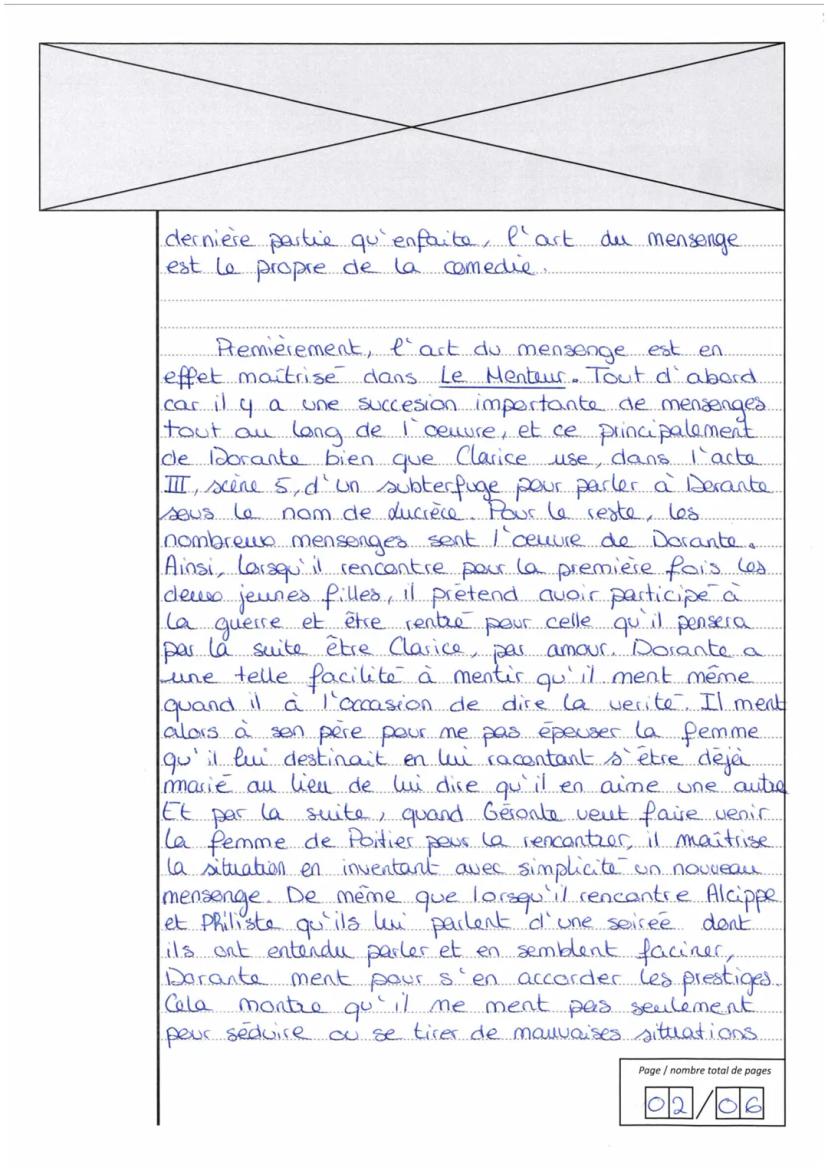 dernière partie qu'enfaite, l'art du mensenge
est le propre de la comedie.
Premièrement, l'art du mensenge est en
effet maîtrisé dans Le Menteur. Tout d'abord
car il y a une succesion importante de mensenges
tout au long de l'œuvre, et ce principalement
de Dorante bien que Clarice use, dans l'acte
III, scène 5, d'un subterfuge pour parler à Dorante
sous le nom de Lucrèce. Pour le reste, les
nombreux mensenges sont l'œuvre de Dorante.
Ainsi, lorsqu'il rencontre pour la première fois les
deux jeunes filles, il prétend avoir participé à
la guerre et être rentré pour celle qu'il pensera
par la suite être Clarice, par amour. Dorante a
une telle facilité à mentir qu'il ment même
quand il à l'occasion de dire la verité. Il ment
alors à son père pour ne pas épouser la femme
qu'il lui destinait en lui racontant s'être déjà
marié au lieu de lui dire qu'il en aime une autre
Et par la suite, quand Géronte veut faire venir
la femme de Poitier pour la rencontrer, il maîtrise
la situation en inventant avec simplicité un nouveau
mensenge. De même que lorsqu'il rencontre Alcippe
et Philiste qu'ils lui parlent d'une soirée dont
ils ont entendu parler et en semblent faciner,
Dorante ment pour s'en accorder les prestiges.
Cela montre qu'il ne ment pas seulement
pour séduire ou se tirer de mauvaises situations
Page / nombre total de pages
02/06